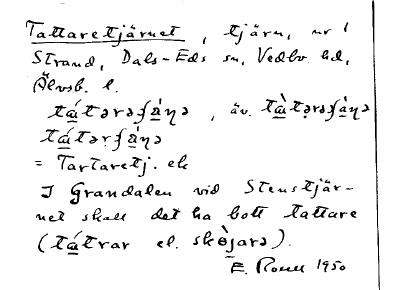 Tattaretjärnet, tjärn, nr 1
Strand, Dals-Eds sn, Vedbo hd,
Älvsb. l.
tátərəʃä́ṇə, äv. tàtərəʃä̀ṇə
tátərʃä́ṇə
= Tartaretj. ek
I Grandalen vid Stenstjär-
net skall det ha bott tattare
(tátrar el. skø̀jarə).
E. 1950